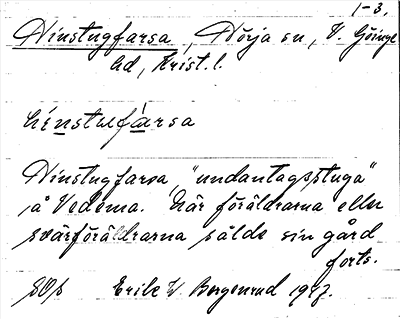 1-3.
Hinstugfarsa, Nörja sn, V. Göinge
hd, Krist. l.
hinstufarsa
Hinstugfarsa, "undantagsstuga"
å Vedema. När föräldrarna eller
svärföräldrarna sålde sin gård
forts.
Erik W Borgenrud 1927.